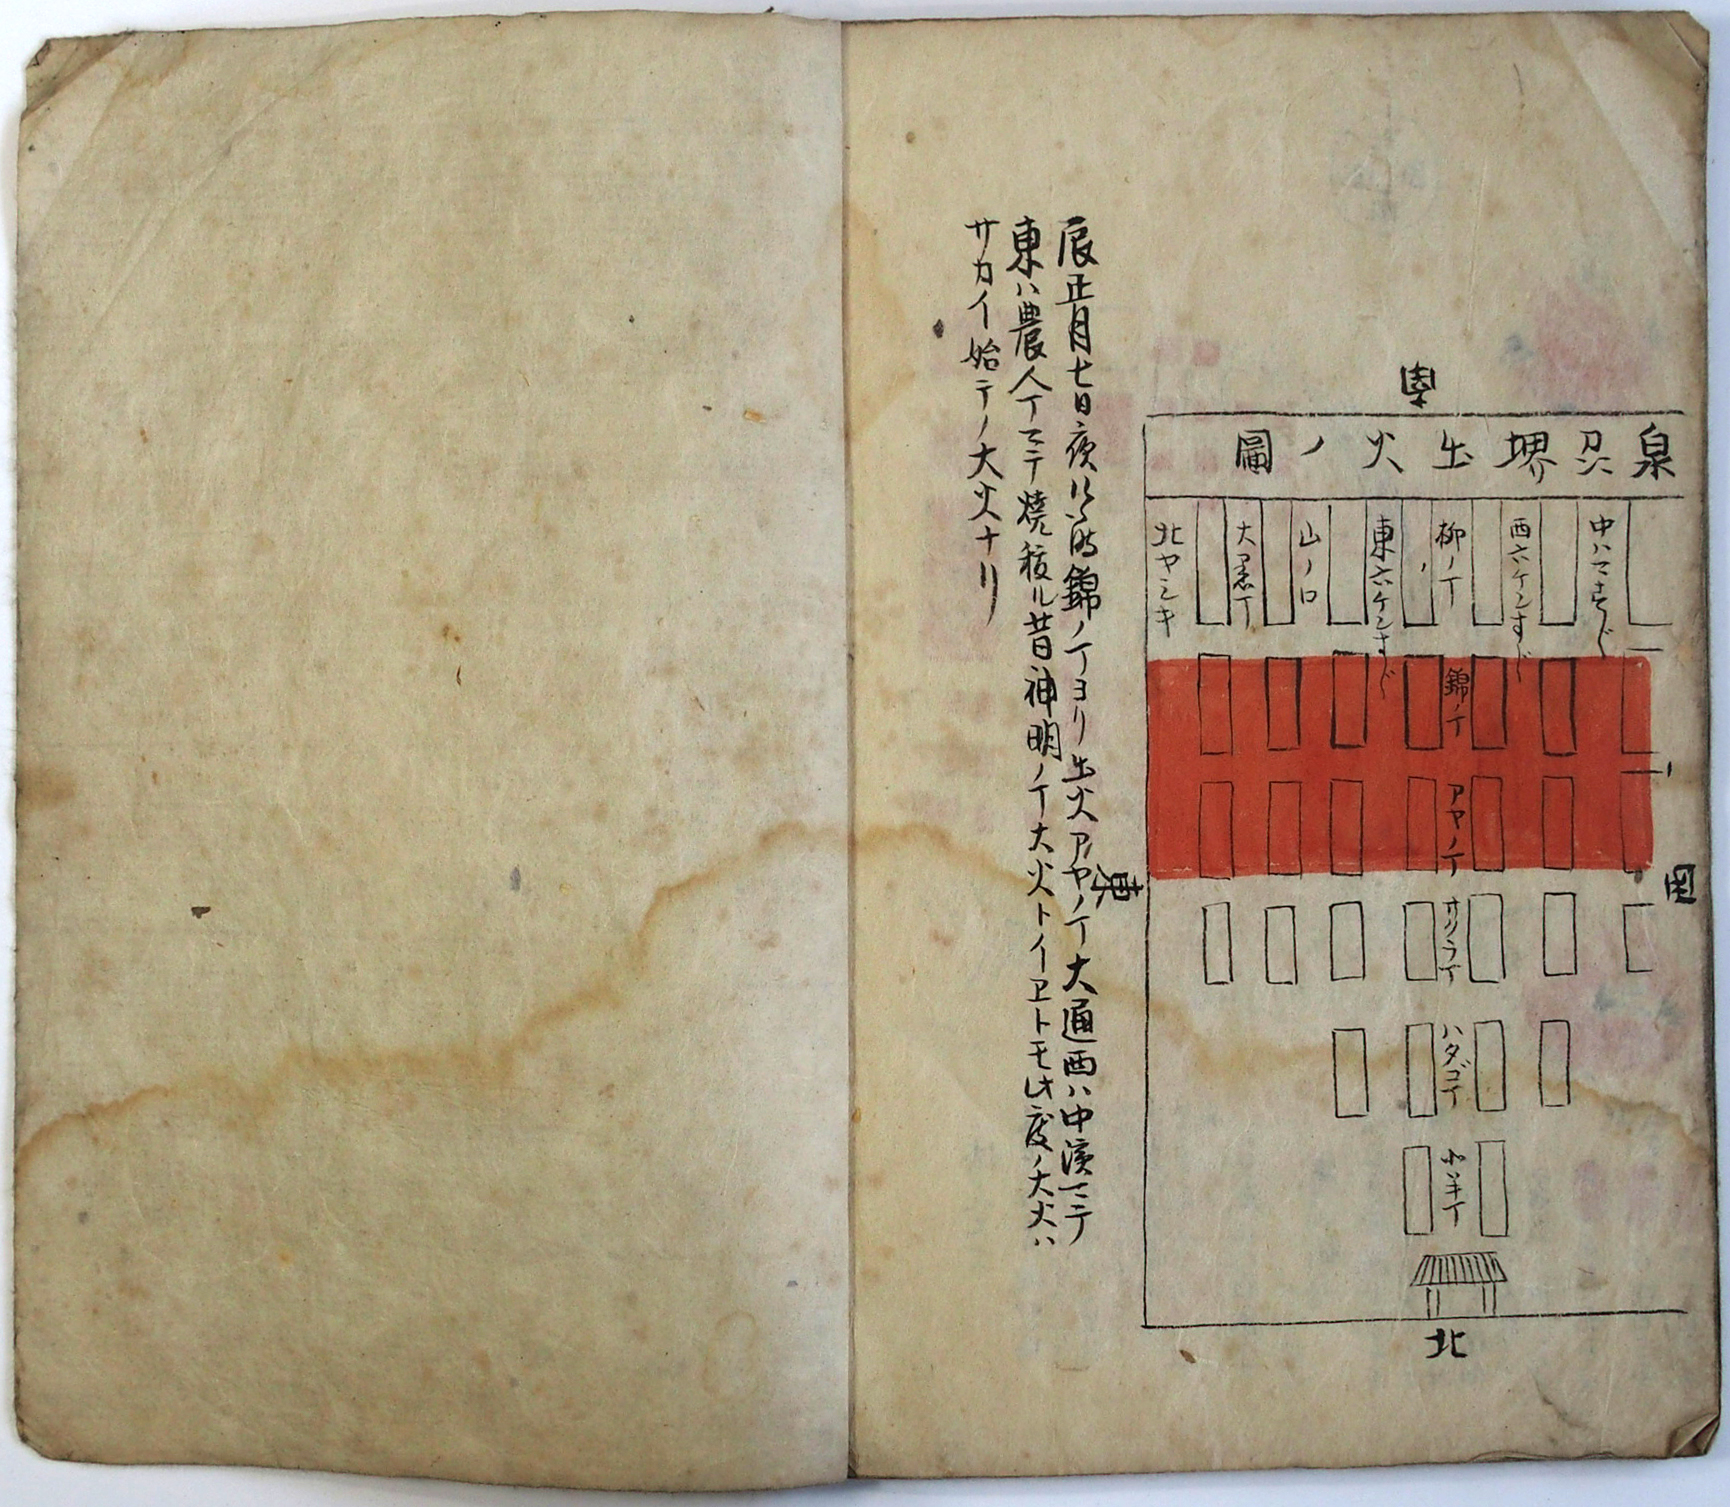 南
泉州堺出火ノ圖
中ハマすじ
西六ケンすじ
柳ノ丁
東六ケンすじ
山ノ口
大黒丁
北ヤシキ
錦ノ丁
アヤノ丁
サクラノ丁
ハタゴ丁
西
東
北
辰正月七日夜 時錦ノ丁ヨリ出火アヤノ丁大通西ハ中濱マテ
東ハ農人丁マテ焼 ル昔神明ノ丁大火トイヱトモ此度ノ大火ハ
サカイ始テノ大火ナリ